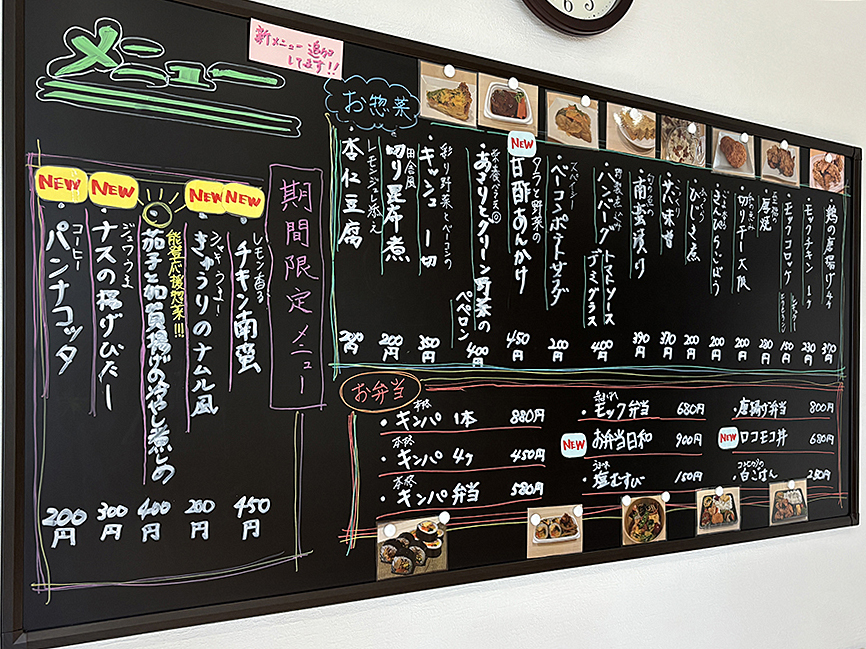 メニュー
新メニュー追加
してます!!
期間限定メニュー
NEW
レモン香る
チキン南蛮
450円
NEW
きゅうりのナムル風
200円
能登応援惣菜!!!
茄子と加賀揚げの冷やし煮しめ
400円
NEW
ジュワうま
ナスの揚げびたし
300円
NEW
コーヒー
パンナコッタ
200円
お惣菜
・鶏の唐揚げ 4ケ
390
・モックチキン 1ケ
230
・モックコロッケ
150
・厚焼
280
・切り干し大根
200
・きんぴらごぼう
200
・ひじき煮
200
・サバ味噌
370
・南蛮漬け
390
・ハンバーグ トマトソース
デミグラス
400
・ベーコンポテトサラダ
200
NEW
タラと野菜の
甘酢あんかけ
450
・あさりとグリーン野菜の
ペペロン
400
彩り野菜とベーコンの
・キッシュ 1切
350
田舎風
・切り昆布煮
200
レモンジュレ添え
・杏仁豆腐
200
お弁当
本格
・キンパ 1本 880円
本格
・キンパ 4ケ 450円
本格
・キンパ弁当 580円
・モック弁当 680円
NEW
お弁当日和 900円
・塩むすび 150円
・唐揚げ弁当 800円
NEW
ロコモコ丼 680円
・白ごはん 250円